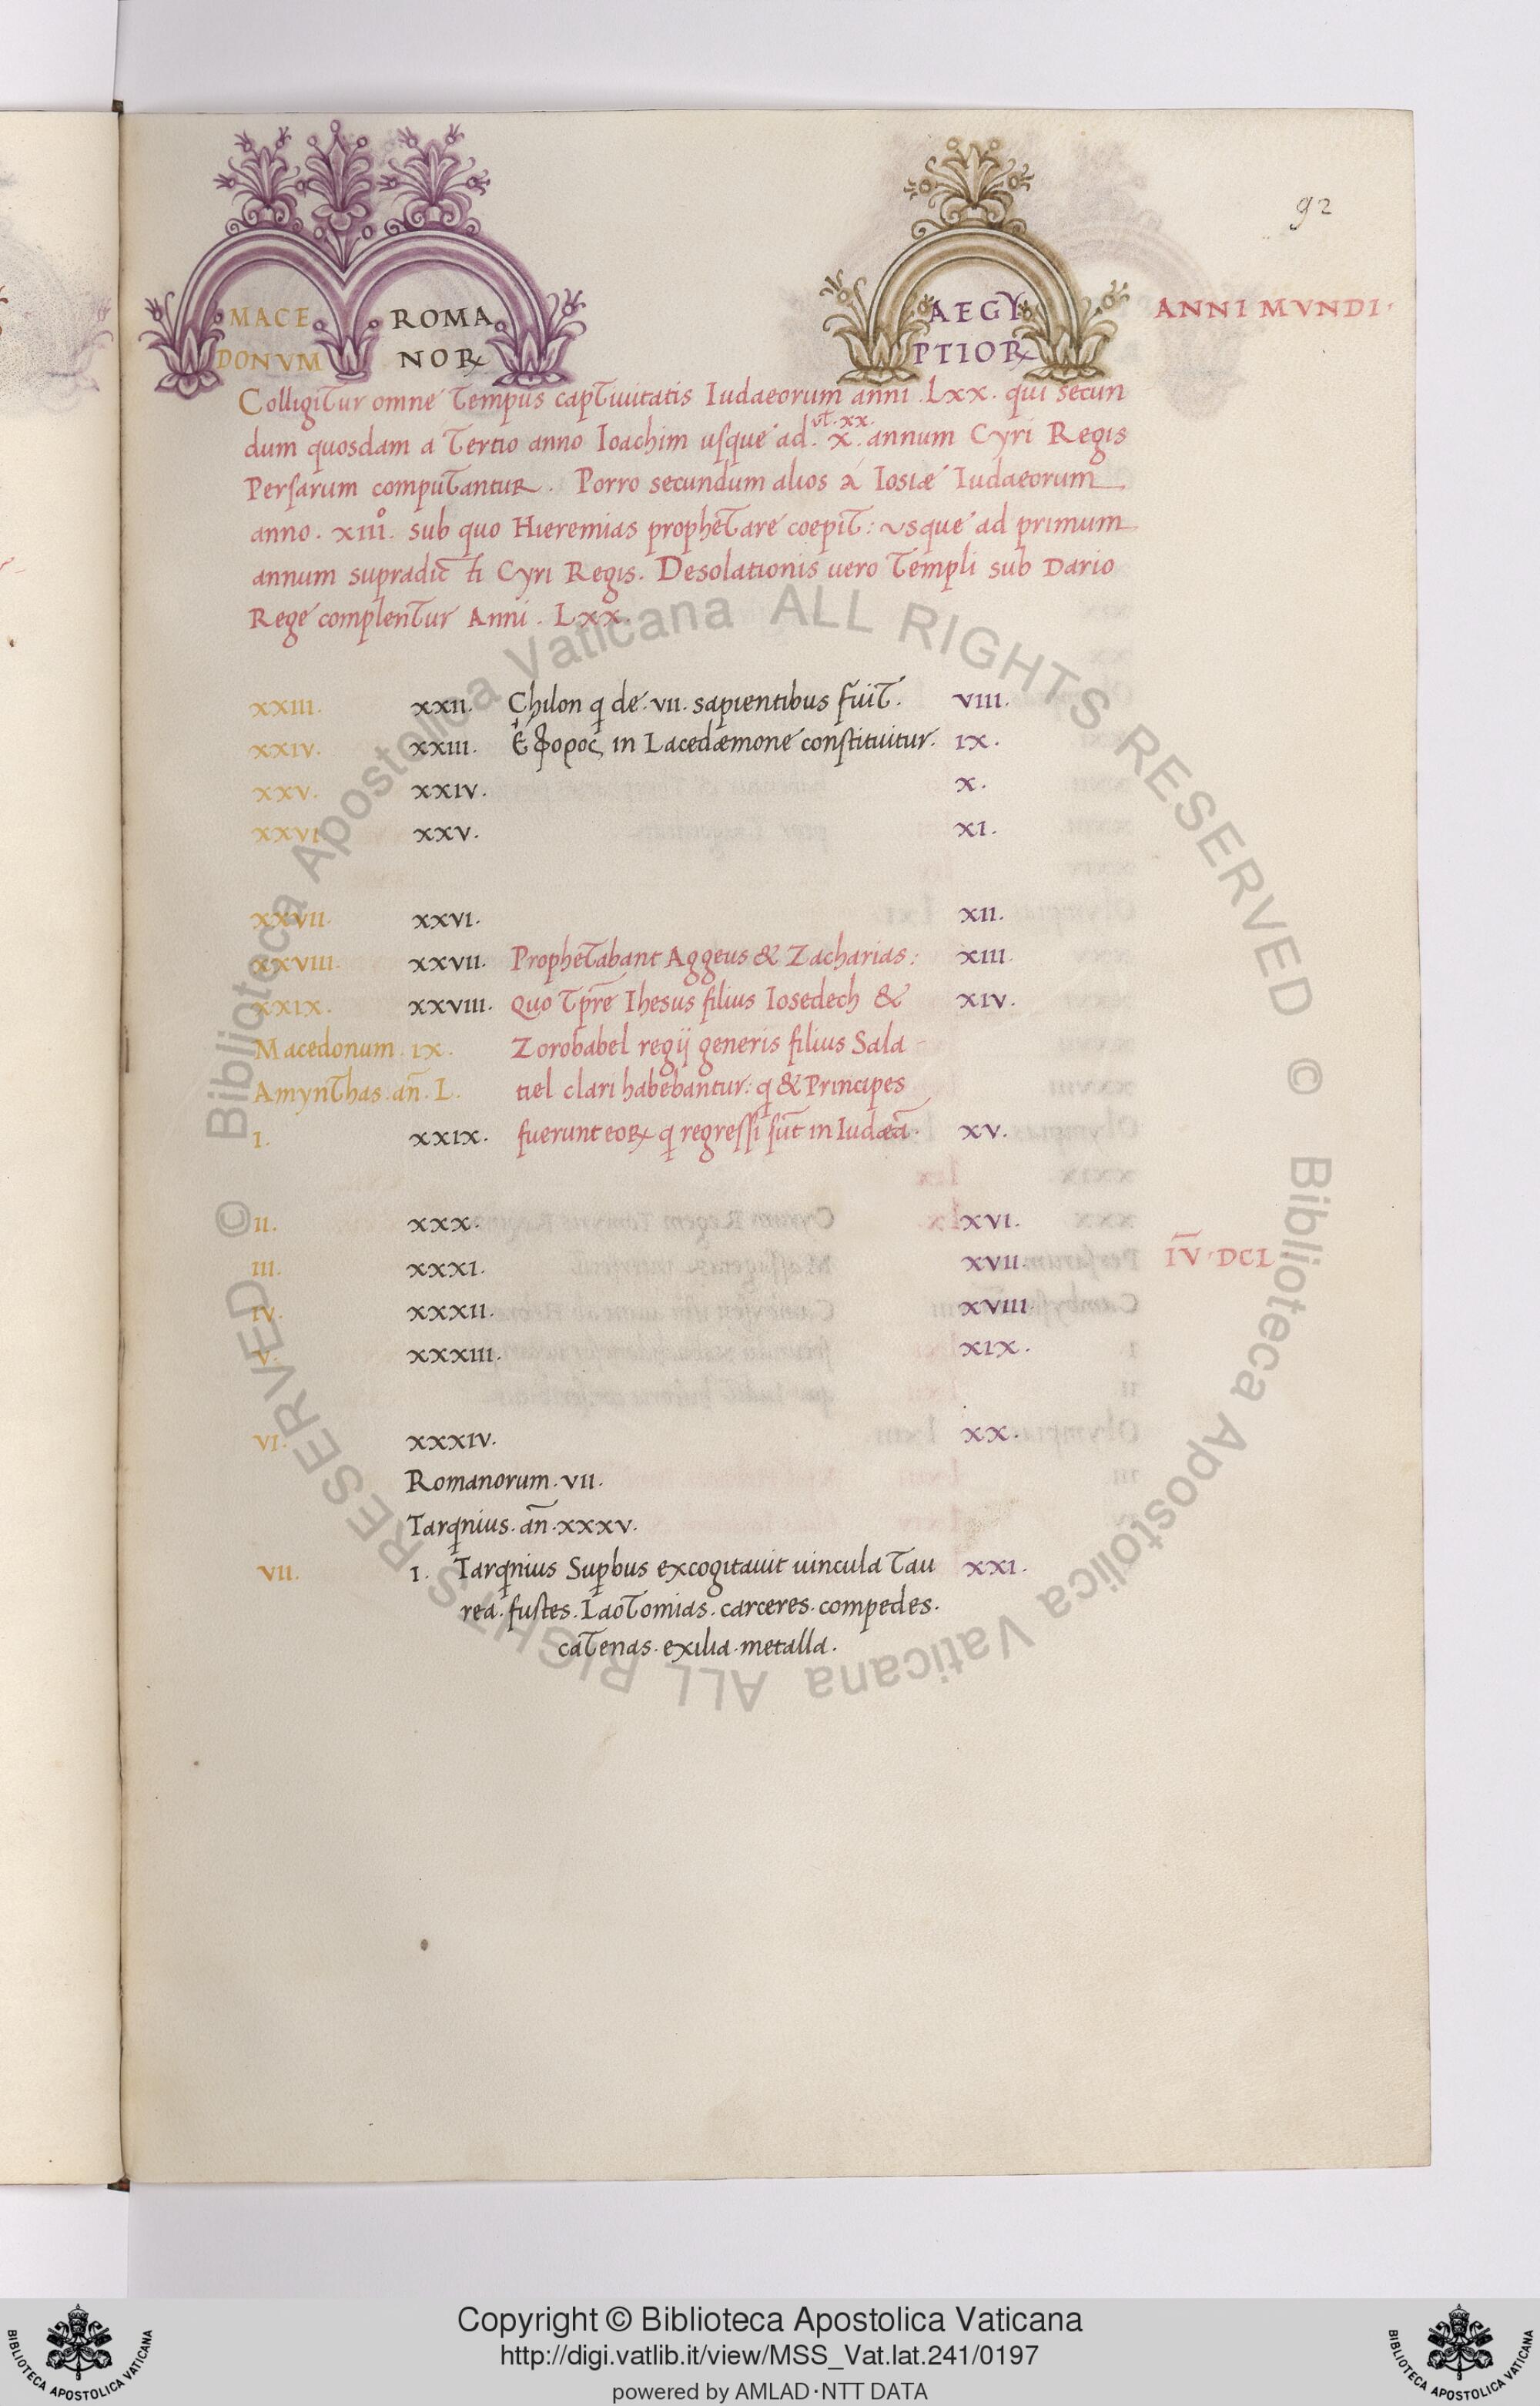 92
MACE ROMA AEGY ANNI MVNDI·
DONVM NOꝜ PTIOꝜ
Colligitur omne Tempus captiuitatis Iudaeorum anni .Lxx. qui secun
vt.xx.
dum quosdam a Tertio anno Ioachim usque ad .x. annum Cyri Regis
Persarum computantur. Porro secundum alios a Iosiæ Iudaeorum
anno. xiiiº. sub quo Hieremias prophetare coepit: vsque ad primum
annum supradic̄ti Cyri Regis. Desolationis uero Templi sub Dario
Rege complentur Anni. Lxx.
xxiii. xxii. Chilon q de .vii. sapientibus fuit. viii.
xxiv. xxiii. Ἔφορος in Lacedæmone constituitur. ix.
xxv. xxiv. x.
xxvi. xxv. xi.
xxvii. xxvi. xii.
xxviii. xxvii. Prophetabant Aggeus & Zacharias: xiii.
xxix. xxviii. Quo tp̄re Ihesus filius Iosedech & xiv.
Macedonum .ix. Zorobabel regij generis filius Sala
Amynthas.an̄.L. tiel clari habebantur: q & Principes
i. xxix. fuerunt eoꝝ q regressi sūt in Iudæā. xv.
ii. xxx. xvi.
iii. xxxi. xvii. I̅V̅·DCL
iv. xxxii. xviii.
v. xxxiii. xix.
vi. xxxiv. xx.
Romanorum.vii.
Tarqnius.an̄.xxxv.
vii. i. Tarqnius Suꝑbus excogitauit uincula Tau xxi.
rea.fustes.Laotomias.carceres.compedes.
catenas.exilia.metalla.
© Biblioteca Apostolica Vaticana ALL RIGHTS RESERVED © Biblioteca Apostolica Vaticana ALL RIGHTS RESERVED
Copyright © Biblioteca Apostolica Vaticana
http://digi.vatlib.it/view/MSS_Vat.lat.241/0197
powered by AMLAD·NTT DATA
BIBLIOTECA APOSTOLICA VATICANA
BIBLIOTECA APOSTOLICA VATICANA